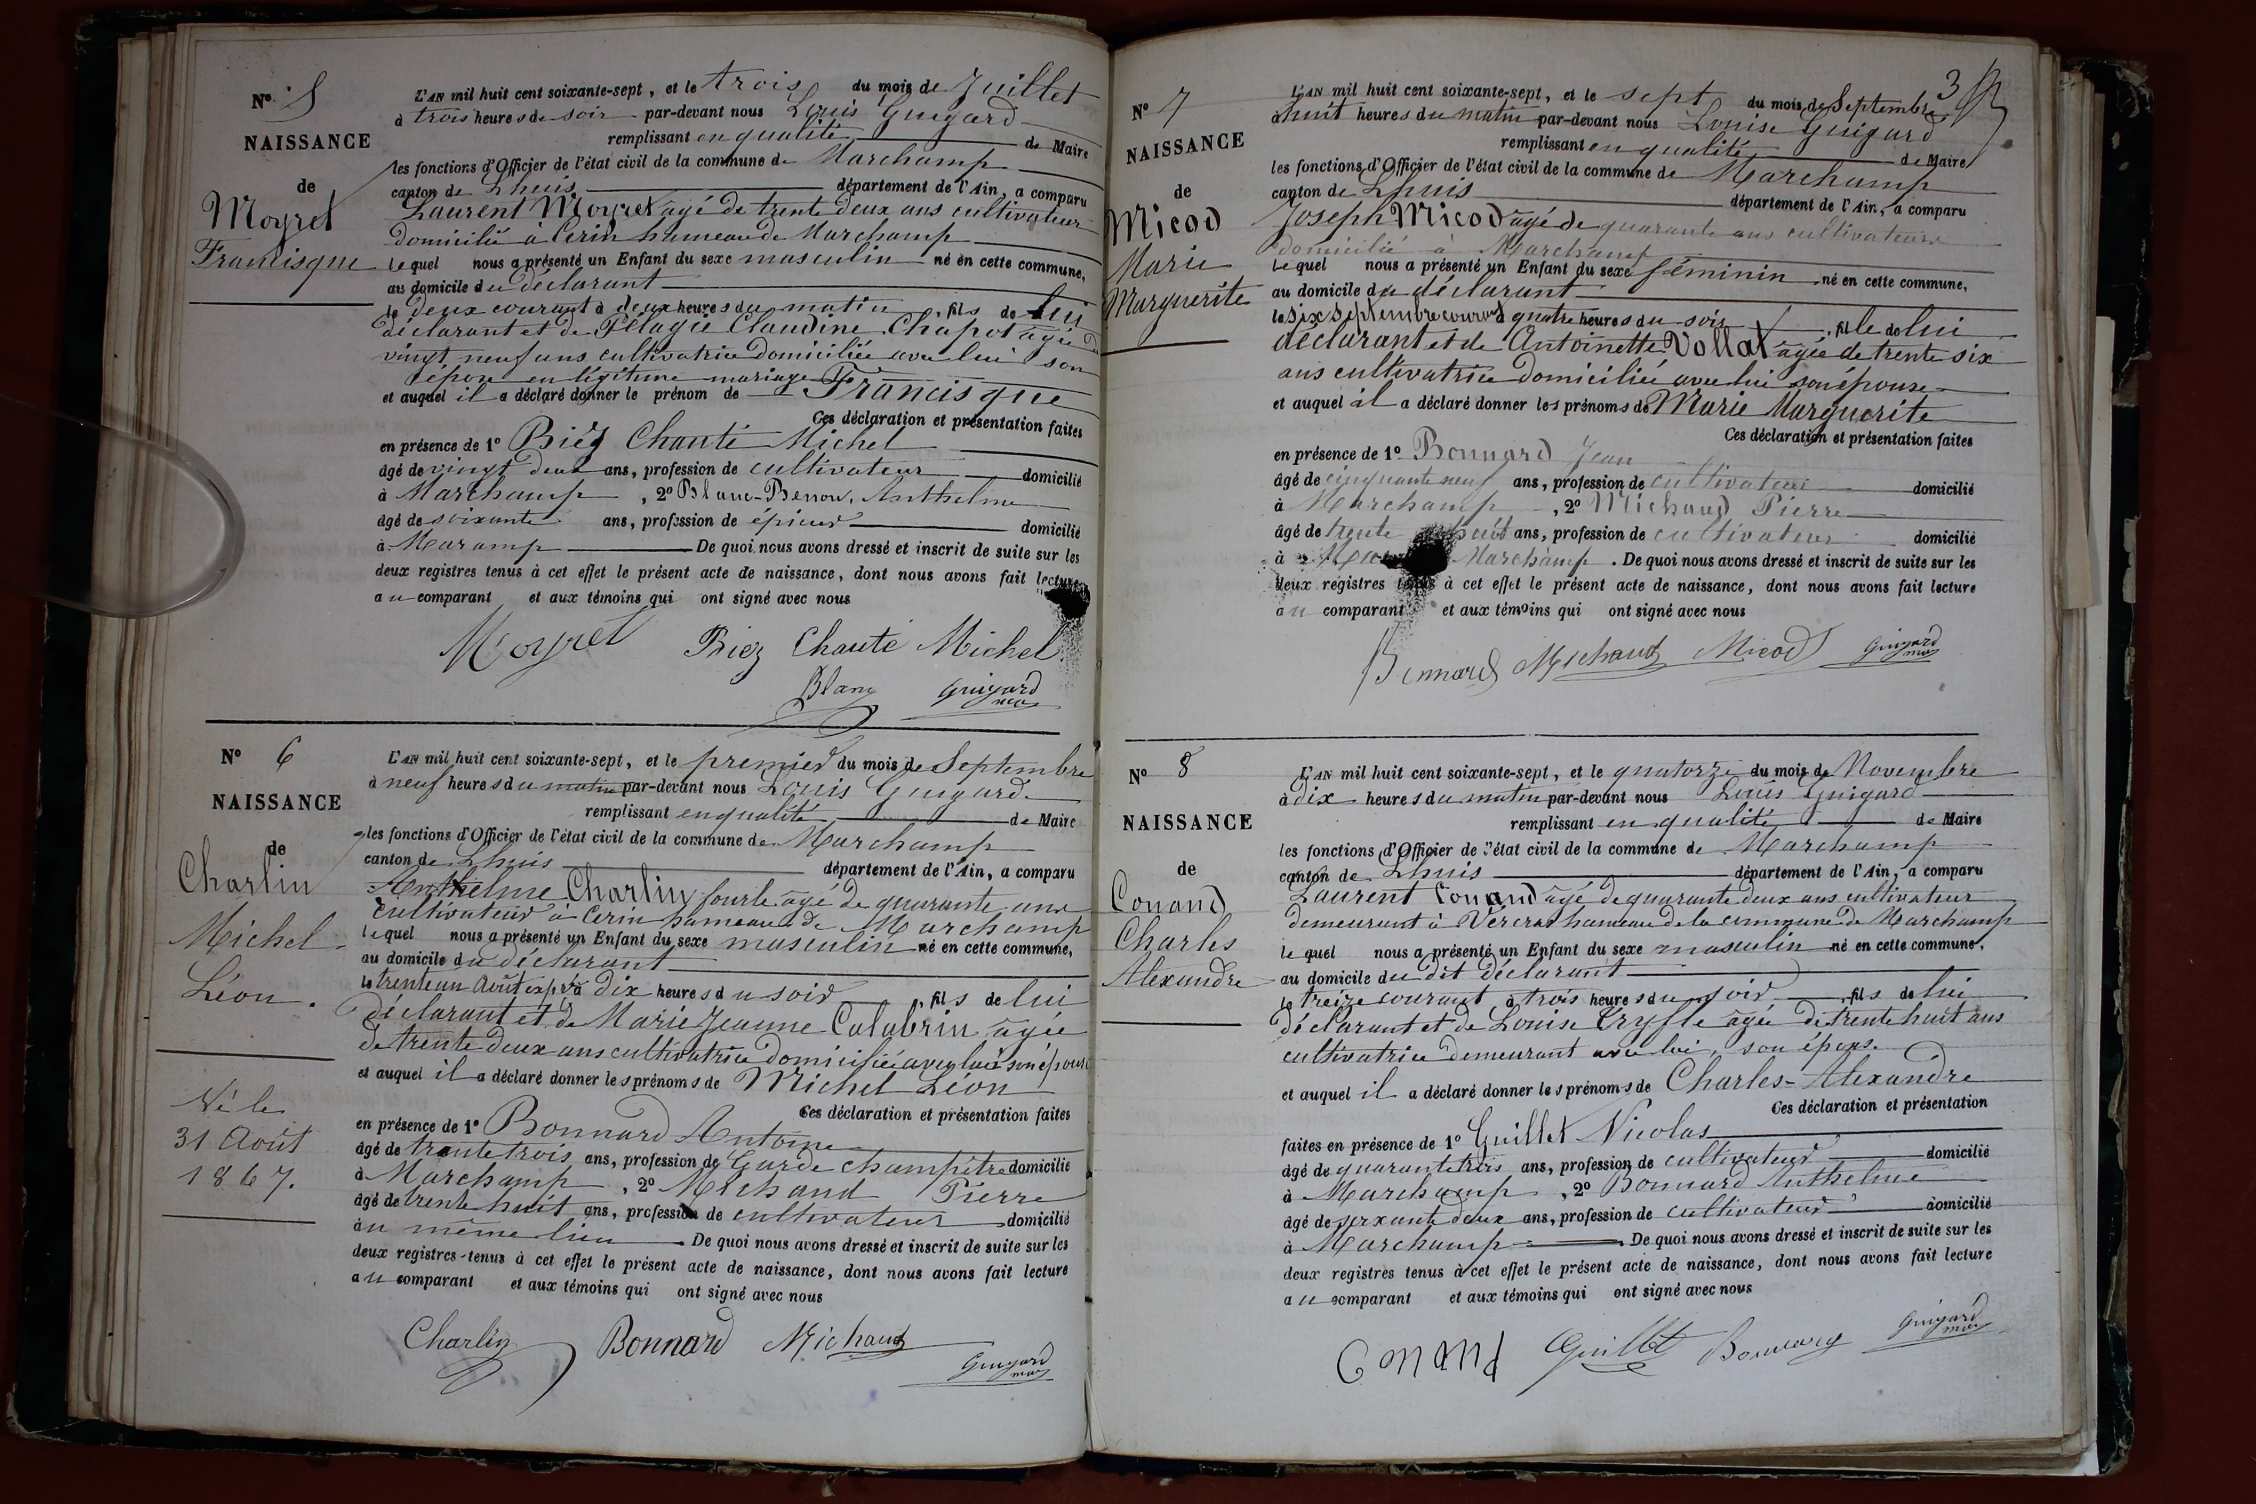 Nº 5
NAISSANCE
de
Moyret
Francisque
L'AN mil huit cent soixante-sept, et le trois du mois de Juillet
à trois heures de soir par-devant nous Louis Guigard
remplissant en qualité de Maire
les fonctions d'Officier de l'état civil de la commune de Marchamp
canton de Lhuis département de l'Ain, a comparu
Laurent Moyret agé de trente deux ans cultivateur
domicilié à Cerin hameau de Marchamp
lequel nous a présenté un Enfant du sexe masculin né en cette commune,
au domicile du déclarant
le deux courant à deux heures du matin, fils de lui
déclarant et de Pélagie Claudine Chapot agée de
vingt neuf ans cultivatrice domiciliée avec lui son
épouse en légitime mariage
et auquel il a déclaré donner le prénom de Francisque
Ces déclaration et présentation faites
en présence de 1º Biéz Chanté Michel
âgé de vingt deux ans, profession de cultivateur domicilié
à Marchamp, 2º Blanc- Anthelme
âgé de soixante ans, profession de épicier domicilié
à Maramp De quoi nous avons dressé et inscrit de suite sur les
deux registres tenus à cet effet le présent acte de naissance, dont nous avons fait lecture
au comparant et aux témoins qui ont signé avec nous
Moyret Biez Chanté Michel
Blanc Guigard
Nº 6
NAISSANCE
de
Charlin
Michel
Léon.
Né le
31 Août
1867.
L'AN mil huit cent soixante-sept, et le premier du mois de Septembre
à neuf heures du matin par-devant nous Louis Guigard
remplissant en qualité de Maire
les fonctions d'Officier de l'état civil de la commune de Marchamp
canton de Lhuis département de l'Ain, a comparu
Anthelme Charlin agé de quarante ans
cultivateur à Cerin hameau de Marchamp
lequel nous a présenté un Enfant du sexe masculin né en cette commune,
au domicile du déclarant
le trente un Août à dix heures du soir, fils de lui
déclarant et de Marie Jeanne Calabrin agée
de trente deux ans cultivatrice domiciliée avec lui son épouse
et auquel il a déclaré donner les prénoms de Michel Léon
Ces déclaration et présentation faites
en présence de 1º Bonnard Antoine
âgé de trente trois ans, profession de Garde champêtre domicilié
à Marchamp, 2º Michaud Pierre
âgé de trente huit ans, profession de cultivateur domicilié
au même lieu. De quoi nous avons dressé et inscrit de suite sur les
deux registres tenus à cet effet le présent acte de naissance, dont nous avons fait lecture
au comparant et aux témoins qui ont signé avec nous
Charlin Bonnard Michaud
Guigard
3
Nº 7
NAISSANCE
de
Micod
Marie
Marguerite
L'AN mil huit cent soixante-sept, et le sept du mois de Septembre
à huit heures du matin par-devant nous Louise Guigard
remplissant en qualité de Maire
les fonctions d'Officier de l'état civil de la commune de Marchamp
canton de Lhuis département de l'Ain, a comparu
Joseph Micod agé de quarante ans cultivateur
domicilié à Marchamp
lequel nous a présenté un Enfant du sexe féminin né en cette commune,
au domicile du déclarant
le six septembre courant à quatre heures du soir, fille de lui
déclarant et de Antoinette Vollat agée de trente six
ans cultivatrice domiciliée avec lui son épouse
et auquel il a déclaré donner les prénoms de Marie Marguerite
Ces déclaration et présentation faites
en présence de 1º Bonnard Jean
âgé de cinquante neuf ans, profession de cultivateur domicilié
à Marchamp, 2º Michaud Pierre
âgé de trente huit ans, profession de cultivateur domicilié
à Marchamp. De quoi nous avons dressé et inscrit de suite sur les
deux registres tenus à cet effet le présent acte de naissance, dont nous avons fait lecture
au comparant et aux témoins qui ont signé avec nous
Bonnard Michaud Micod Guigard
Nº 8
NAISSANCE
de
Conand
Charles
Alexandre
L'AN mil huit cent soixante-sept, et le quatorze du mois de Novembre
à dix heures du matin par-devant nous Louis Guigard
remplissant en qualité de Maire
les fonctions d'Officier de l'état civil de la commune de Marchamp
canton de Lhuis département de l'Ain, a comparu
Laurent Conand agé de quarante deux ans cultivateur
demeurant à Vercras hameau de la commune de Marchamp
lequel nous a présenté un Enfant du sexe masculin né en cette commune,
au domicile du dit déclarant
le treize courant à trois heures du soir, fils de lui
déclarant et de Louise Tryfle agée de trente huit ans
cultivatrice demeurant avec lui, son épous.
et auquel il a déclaré donner les prénoms de Charles-Alexandre
Ces déclaration et présentation
faites en présence de 1º Guillet Nicolas
âgé de quarante trois ans, profession de cultivateur domicilié
à Marchamp, 2º Bonnard Anthelme
âgé de soixante deux ans, profession de cultivateur domicilié
à Marchamp. De quoi nous avons dressé et inscrit de suite sur les
deux registres tenus à cet effet le présent acte de naissance, dont nous avons fait lecture
au comparant et aux témoins qui ont signé avec nous
Conand Guillet Bonnard Guigard